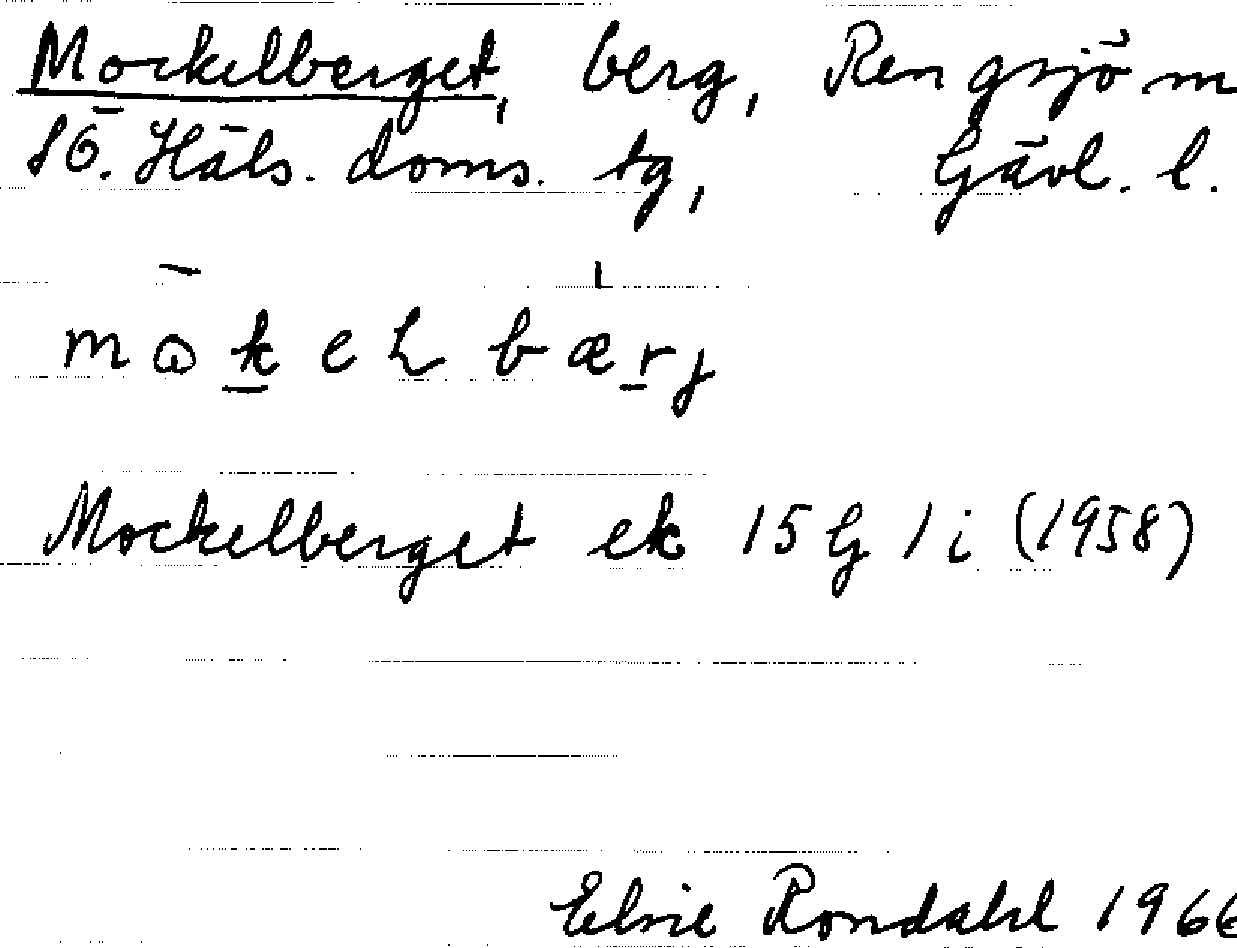 Mockelberget, berg, Rengsjö m
SÖ. Häls. doms. tg, Gävl. l.
Mockelberget ek 15 G 1 i (1958)
Elsie Rondahl 1966